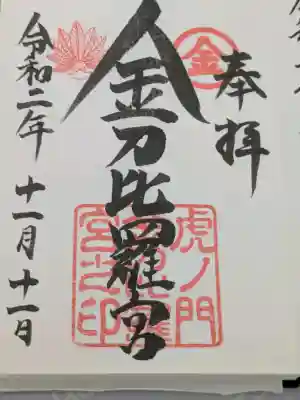 奉拝
金
金刀比羅宮
虎ノ門
金刀比羅
宮之印
令和二年 十一月 十一日